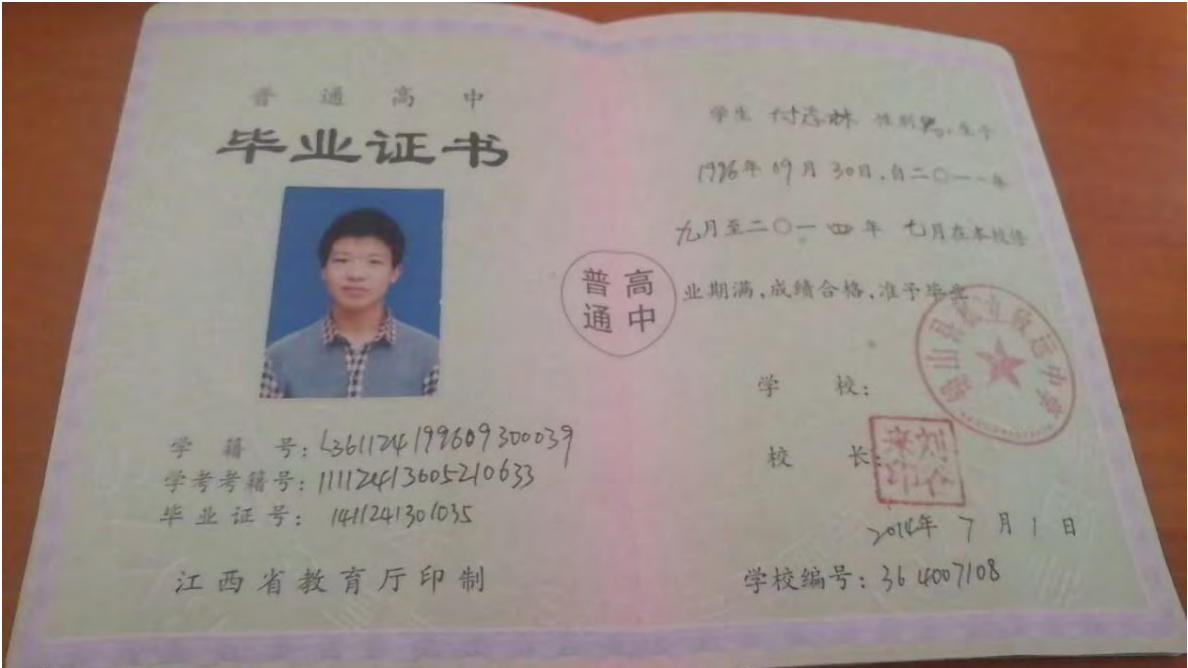 普通高中
毕业证书
学籍号：L361124199609300039
学考考籍号：11112413605210633
毕业证号：1411241301035
江西省教育厅印制
普高
通中
学生 付 林 性别男，生于
1996年09月30日，自二〇一一年
九月至二〇一四年 七月在本校修
业期满，成绩合格，准予毕业
学校：
山县 致远中学
校长：
刘
来印
2014年7月1日
学校编号：364007108